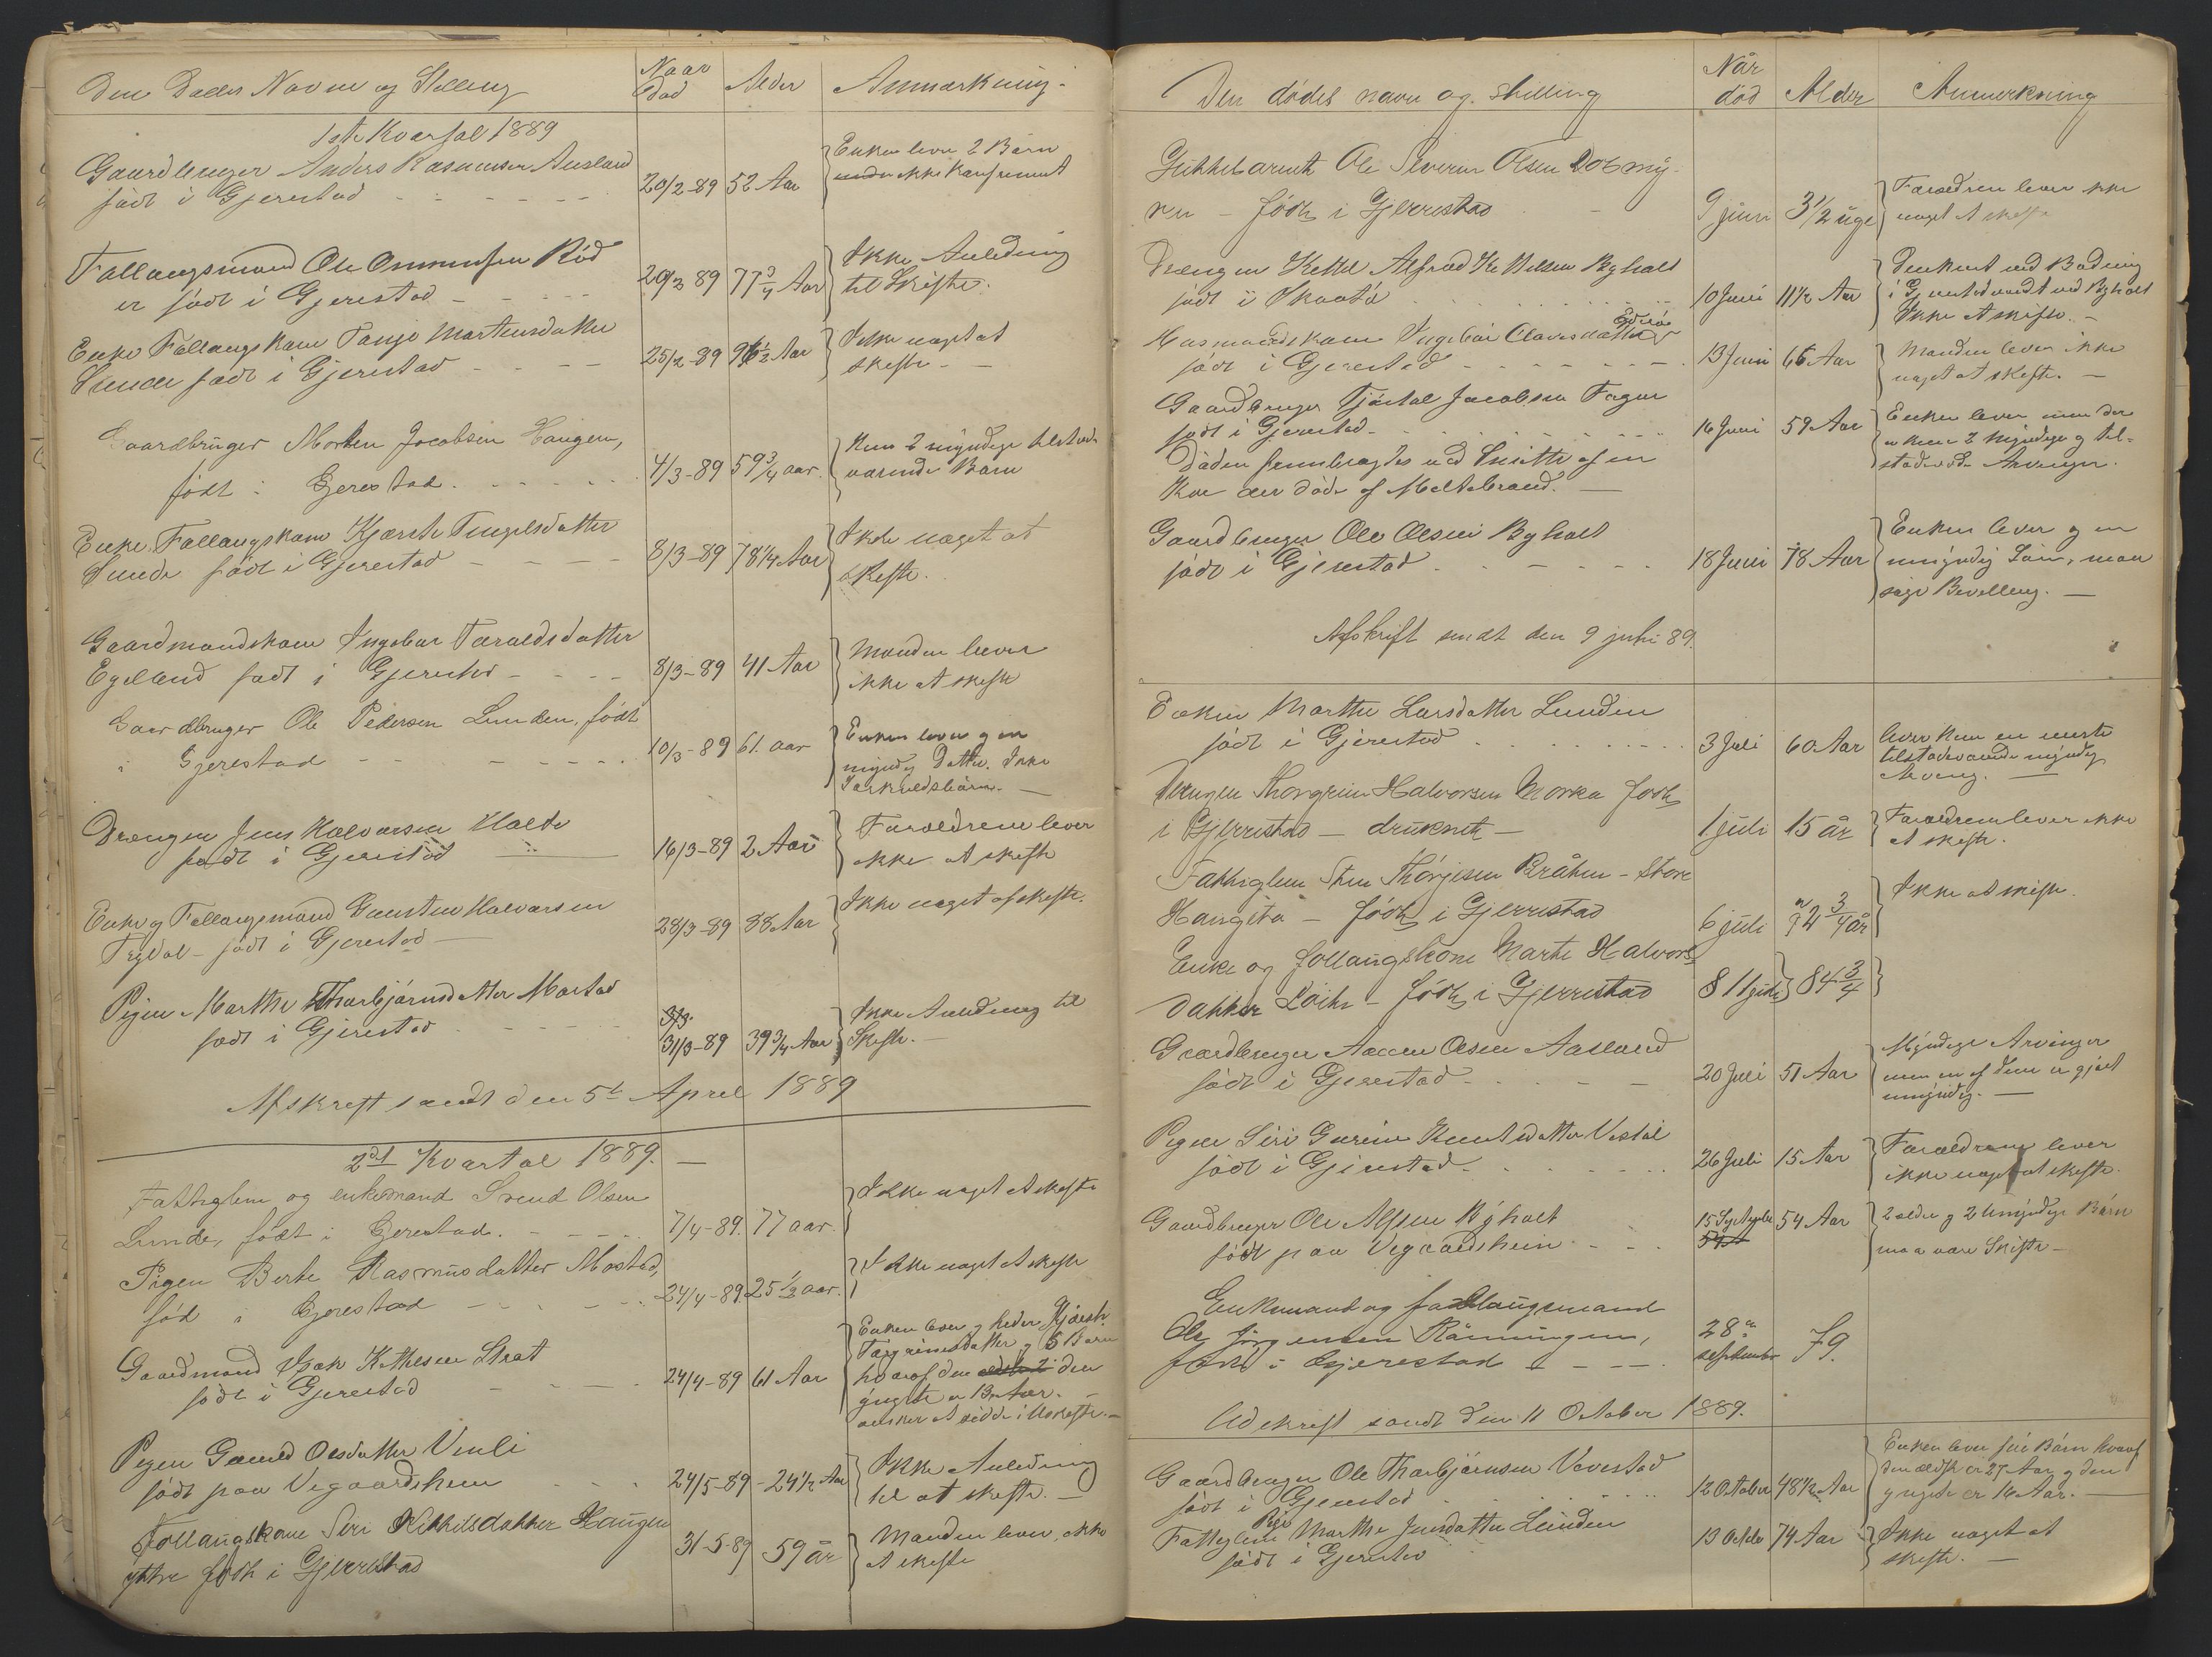 Den Dødes Navn og Stilling
Naar Død
Alder
Anmærkning
1ste Kvartal 1889
Gaardbruger Anders Rasmussen Ausland
født i Gjerestad
20/2-89 52 Aar
Enken lever 2 Børn
ikke Konfirmeret
Føllaugsmand Ole Ommundsen Rød
er født i Gjerestad
20/3 89 77 3/4 Aar
Ikke Anledning
til Skifte.
Enke Føllaugskone Tanje Martensdatter
Sunde født i Gjerestad
25/2-89 96 1/2 Aar
Ikke noget at
skifte
Gaardbruger Morten Jacobsen Haugen,
født i Gjerestad
4/3-89 59 3/4 aar.
Kun 2 myndige tilstede
værende Børn
Enke Føllaugskone Kjærsti Tengelsdatter
Sunde født i Gjerestad
8/3-89 78 1/4 Aar
Ikke noget at
skifte.
Gaardmandskone Ingebor Taraldsdatter
Egeland født i Gjerestad
8/3-89 41 Aar
Manden lever
ikke at skifte
Gaardbruger Ole Pedersen Lunden, født
i Gjerestad
10/3-89 61 aar
Enken lever og en
myndig Datter. Ikke
Særkuldsbørn.
Drengen Jens Halvorsen Holte
født i Gjerestad
16/3-89 2 Aar
Forældrene lever
ikke at skifte
Enke og Føllaugsmand Gunsten Halvorsen
Trydal - født i Gjerestad
28/3-89 88 Aar
Ikke noget at skifte.
Pigen Marthe Thorbjørnsdatter Mostad
født i Gjerestad
31/3-89 39 3/4 Aar
Ikke Anledning til
Skifte.
Afskrift sendt den 5te April 1889
2det Kvartal 1889.
Fattiglem og enkemand Svend Olsen
Lunde, født i Gjerestad.
7/4-89. 77 aar.
Ikke noget at skifte
Pigen Berte Rasmusdatter Mostad,
fød i Gjerestad
24/4-89. 25 1/2 aar.
Ikke noget at skifte
Gaardmand Isak Kittelsen Strat
født i Gjerestad
24/4-89 61 Aar
Enken lever og heder Kjærsti
Targrimsdatter og 6 Børn
hvoraf den den
yngste er 13 Aar.
ønsker at sidde i Uskifte.
Pigen Gunild Olsdatter Vinli
født paa Vegaardshein
24/5-89 24 1/2 Aar
Ikke Anledning
til at skifte.
Føllaugskone Siri Kittilsdatter Haugen
yttre født i Gjerrestad
31-5-89 59 år
Manden lever, ikke
at skifte
Den dødes navn og. stilling
Når død
Alder
Anmerkning
Ole Severin Olsen Dobmy-
ren - født i Gjerrestad
9 juni 3 1/2 uge
Forældren lever ikke
noget at skifte
Drengen Kettel Alfred Nilsen Byholt
født i Skaatø
10 Juni 11 1/2 Aar
Druknet ved Badning
i Gjerestadvandet ved Byholt
Ikke at skifte.
Husmandskone Ingebor Olavesdatter
født i Gjerestad
13 Juni 66 Aar
Manden lever ikke
noget at skifte.
Gaardbruger Tjøstol Jacobsen Fogne
født i Gjerestad
Døden frembragtes ved Smitte af en
Koe der døde af Miltebrand.
16 Juni 59 Aar
Enken lever men der
er kun 2 Myndige og til-
stedeværende Arvinger.
Gaardbruger Ole Olsen Byholt
født i Gjerestad
18 Juni 78 Aar
Enken lever og en
umyndig Søn, maa
søge Bevilling.
Afskrift sendt den 9 juli 89.
Enken Marthe Larsdatter Lunden
født i Gjerestad
3 Juli 60 Aar
lever kun en eneste
tilstedeværende myndig
Arving.
Drengen Thorgrim Halvorsen Morka født
i Gjerrestad - druknet -
1 juli 15 år
Forældrene lever ikke
at skifte.
Fattiglem Sten Thorjesen Bråten - Store
- født i Gjerrestad
6 juli 92 3/4 år
Ikke at skifte.
Enke og føllaugskone Marte Halvors
datter Løite - født i Gjerrestad
84 3/4
Gaardbruger Aanen Olsen Aasland
født i Gjerestad
20 Juli 51 Aar
Myndige Arvinger
men en af dem er gjort
umyndig.
Pigen Siri Gurine Knutsdatter Vestøl
født i Gjerestad
26 Juli 15 Aar
Forældrene lever
ikke noget at skifte.
Gaardbruger Ole Alfsen Byholt
født paa Vegaardshein
15 September 54 Aar
2 ældre og 2 Umyndige Børn
maa være Skifte
Enkemand og føllaugsmand
Ole Jørgensen Rønningen,
født i Gjerestad
28de september 79.
Udskrift sendt den 11 October 1889.
Gaardbruger Ole Thorbjørnsen Vevestad
født i Gjerestad
12 October 48 1/2 Aar
Enken lever fire Børn hvoraf
den ældste er 27 Aar og den
yngste er 16 Aar.
Fattiglem Pige Marthe Jensdatter Lunden
født i Gjerestad
13 Octbr 74 Aar
Ikke noget at
skifte.